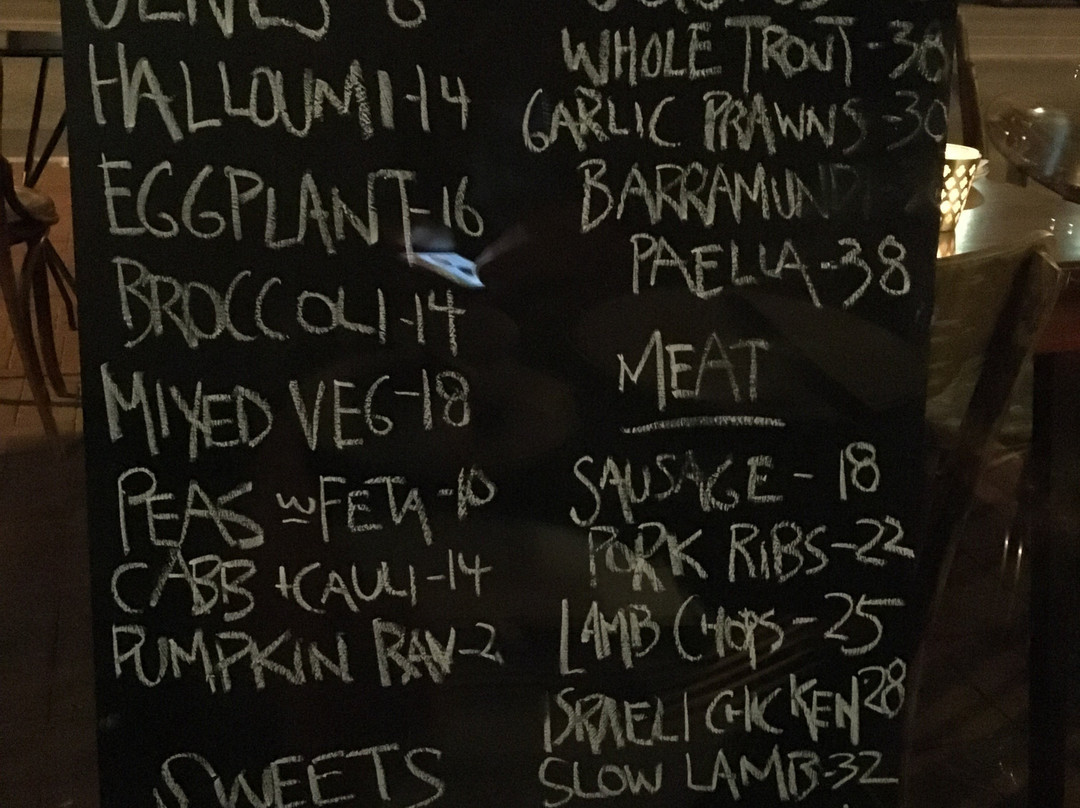 OLIVES 8
HALLOUMI-14
EGGPLANT-16
BROCCOLI-14
MIXED VEG-18
PEAS w FETA-10
CABB +CAULI-14
PUMPKIN RAV-2
SWEETS
WHOLE TROUT-38
GARLIC PRAWNS-30
BARRAMUNDI
PAELLA-38
MEAT
SAUSAGE-18
PORK RIBS-22
LAMB CHOPS-25
ISRAELI CHICKEN 28
SLOW LAMB-32